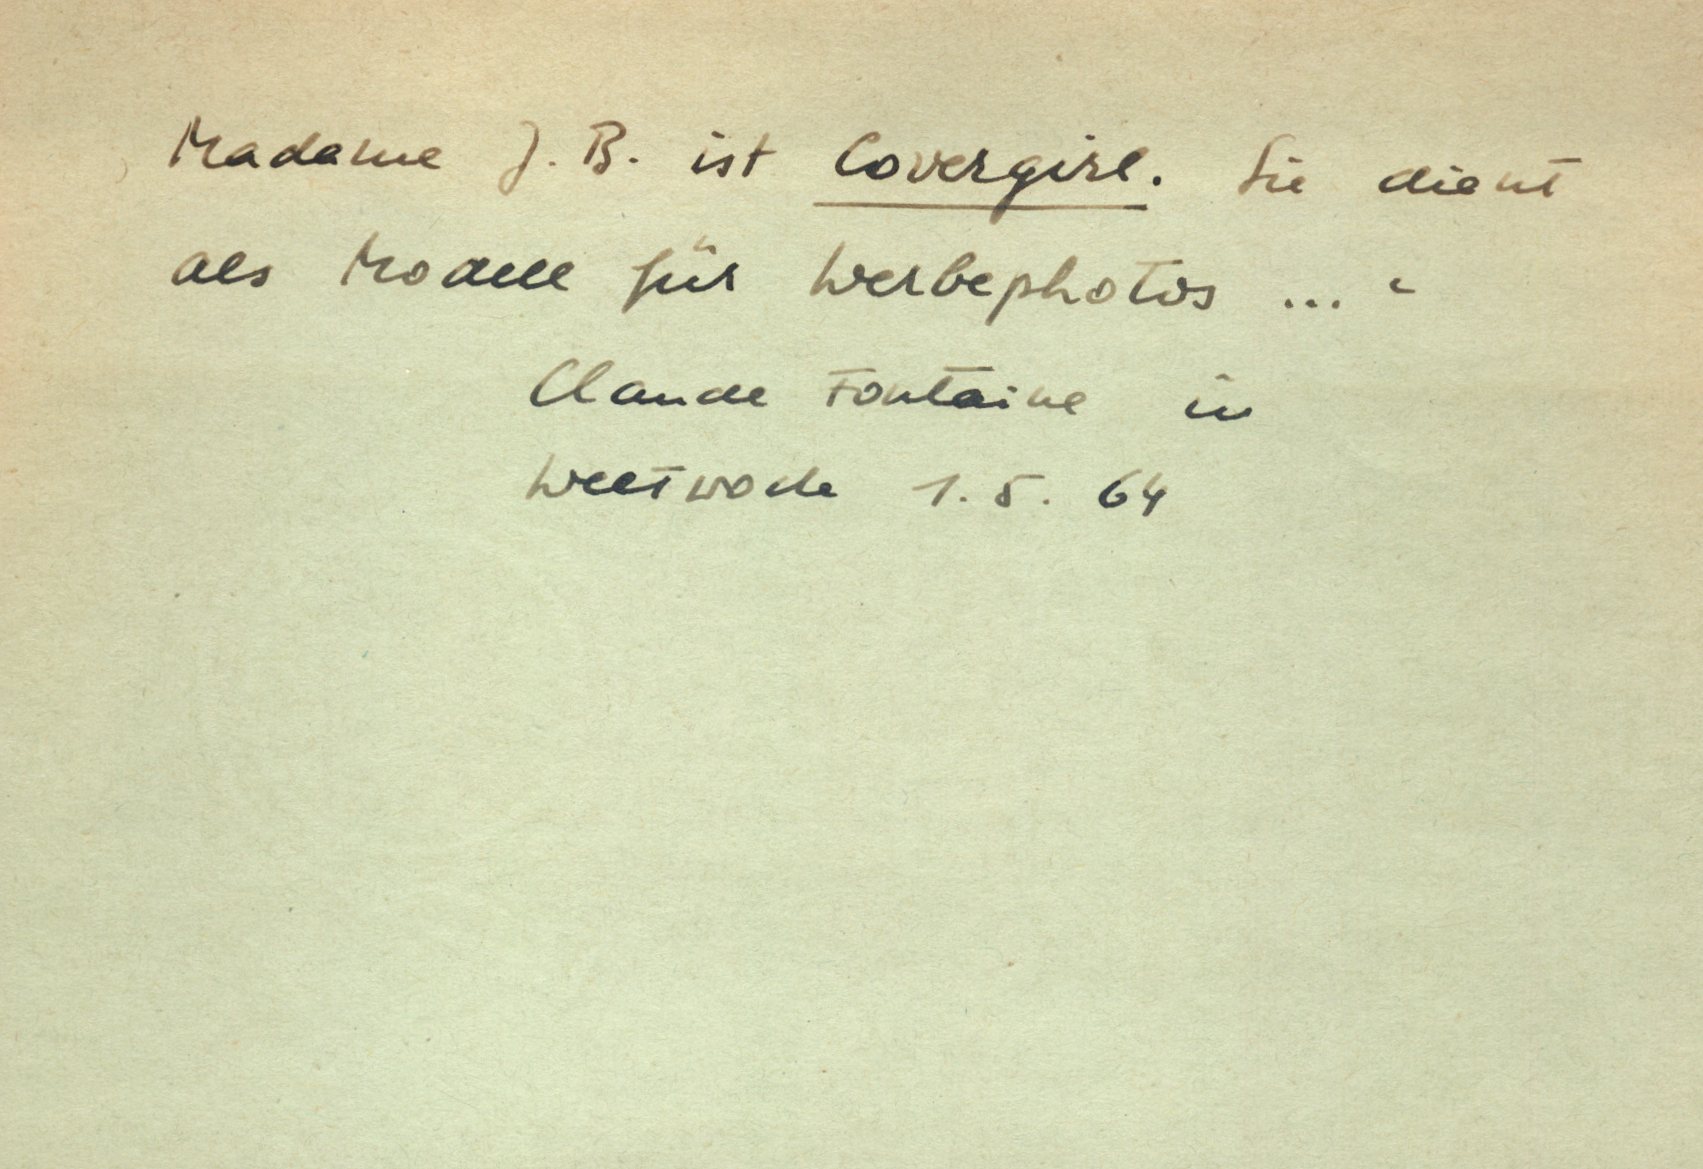 ‚Madame J. B. ist Covergirl. Sie dient
als Modell für Werbephotos ... ‘
Claude Fontaine in
Weltwoche 1. 5. 64